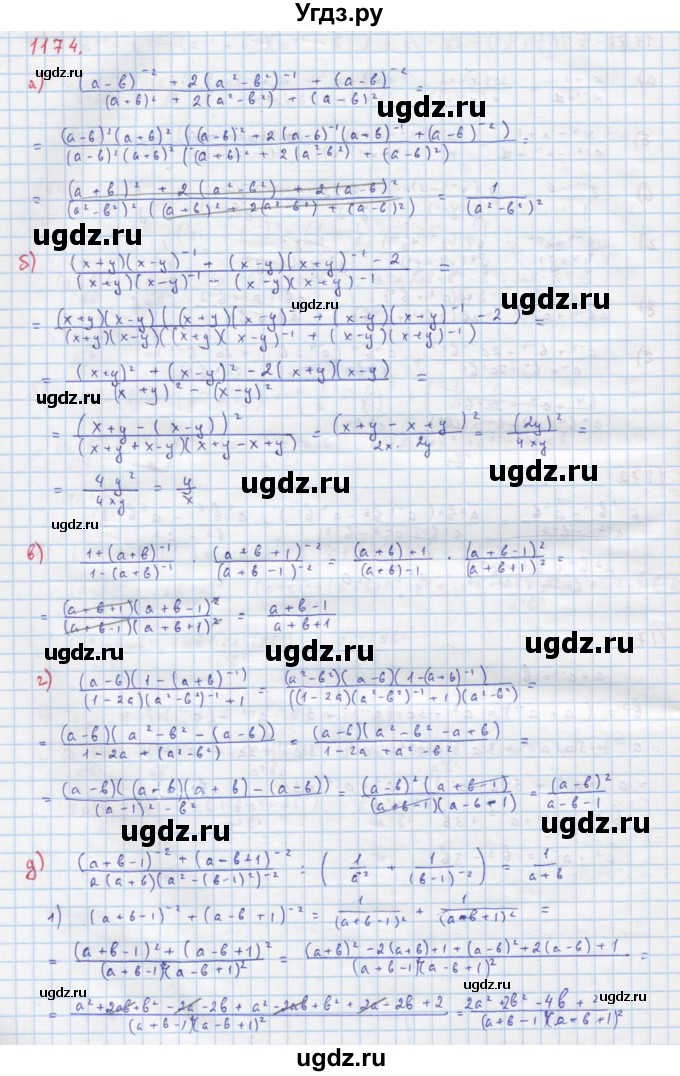 Угдз.ру
1174.
ugdz.ru
а) ((a-b)^-2 + 2(a²-b²)^-1 + (a-b)^-2)/((a+b)² + 2(a²-b²) + (a-b)²) =
ugdz.ru
= ((a-b)²(a+b)² ((a-b)² + 2(a-b)^-1(a+b)^-1 + (a-b)^-2))/((a-b)²(a+b)² ((a+b)² + 2(a²-b²) + (a-b)²)) =
ugdz.ru
= ((a+b)² + 2(a²-b²) + 2(a-b)²)/((a²-b²)² ((a+b)² + 2(a²-b²) + (a-b)²)) = 1/(a²-b²)²
ugdz.ru
ugdz.ru
б) ((x+y)(x-y)^-1 + (x-y)(x+y)^-1 - 2)/((x+y)(x-y)^-1 - (x-y)(x+y)^-1) =
ugdz.ru
= ((x+y)(x-y)((x+y)(x-y)^-1 + (x-y)(x+y)^-1 - 2))/((x+y)(x-y)((x+y)(x-y)^-1 + (x-y)(x+y)^-1)) =
ugdz.ru
= ((x+y)² + (x-y)² - 2(x+y)(x-y))/((x+y)² - (x-y)²) =
ugdz.ru
= (x+y-(x-y))²/((x+y+x-y)(x+y-x+y)) = (x+y-x+y)²/(2x·2y) = (2y)²/4xy =
ugdz.ru
= 4y²/4xy = y/x
ugdz.ru ugdz.ru
ugdz.ru
в) (1+(a+b)^-1)/(1-(a+b)^-1) · (a+b+1)^-2/(a+b-1)^-2 = ((a+b)+1)/((a+b)-1) · (a+b-1)²/(a+b+1)² =
ugdz.ru
= ((a+b+1)(a+b-1)²)/((a+b-1)(a+b+1)²) = (a+b-1)/(a+b+1)
ugdz.ru
ugdz.ru
г) ((a-b)(1-(a+b)^-1))/((1-2a)(a²-b²)^-1+1) = ((a²-b²)(a-b)(1-(a+b)^-1))/(((1-2a)(a²-b²)^-1+1)(a²-b²)) =
ugdz.ru
= ((a-b)(a²-b²-(a-b)))/(1-2a+(a²-b²)) = ((a-b)(a²-b²-a+b))/(1-2a+a²-b²) =
ugdz.ru
= ((a-b)((a-b)(a+b)-(a-b)))/((a-1)²-b²) = ((a-b)²(a+b-1))/((a+b-1)(a-b-1)) = (a-b)²/(a-b-1)
ugdz.ru
ugdz.ru
д) ((a+b-1)^-2+(a-b+1)^-2)/(2(a+b)(a²-(b-1)²)^-2) : (1/a² + 1/(b-1)^-2) = 1/(a+b)
ugdz.ru
1) (a+b-1)^-2 + (a-b+1)^-2 = 1/(a+b-1)² + 1/(a-b+1)² =
= ((a+b-1)²+(a-b+1)²)/((a+b-1)²(a-b+1)²) = ((a+b)²-2(a+b)+1+(a-b)²+2(a-b)+1)/((a+b-1)²(a-b+1)²) =
ugdz.ru
ugdz.ru
= (a²+2ab+b²-2a-2b+a²-2ab+b²+2a-2b+2)/((a+b-1)²(a-b+1)²) = (2a²+2b²-4b+2)/((a+b-1)²(a-b+1)²)
ugdz.ru